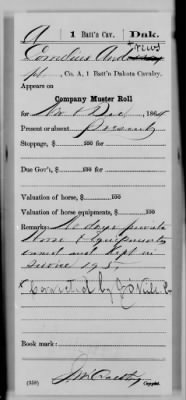 A 1 Batt'n Cav. Dak.
Cornelius Andrews
pt, Co. A, 1 Batt'n Dakota Cavalry.
Appears on
Company Muster Roll
for Nov & Dec, 1864
Present or absent Present
Stoppage, $ 100 for
Due Gov't, $ 100 for
Valuation of horse, $ 100
Valuation of horse equipments, $ 100
Remarks: 61 days private
Horse & Equipments
owned and kept in
service
Book mark:
(358) Copyist.